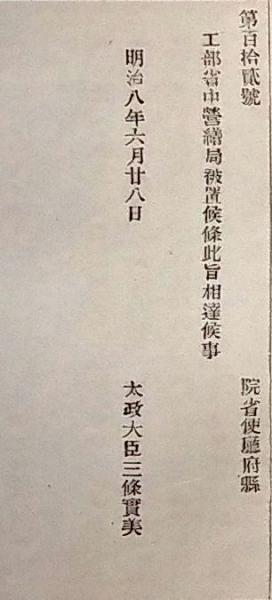 第百拾貳號
院省使廳府縣
工部省中營繕局被置候條此旨相達候事
明治八年六月廿八日
太政大臣三條實美